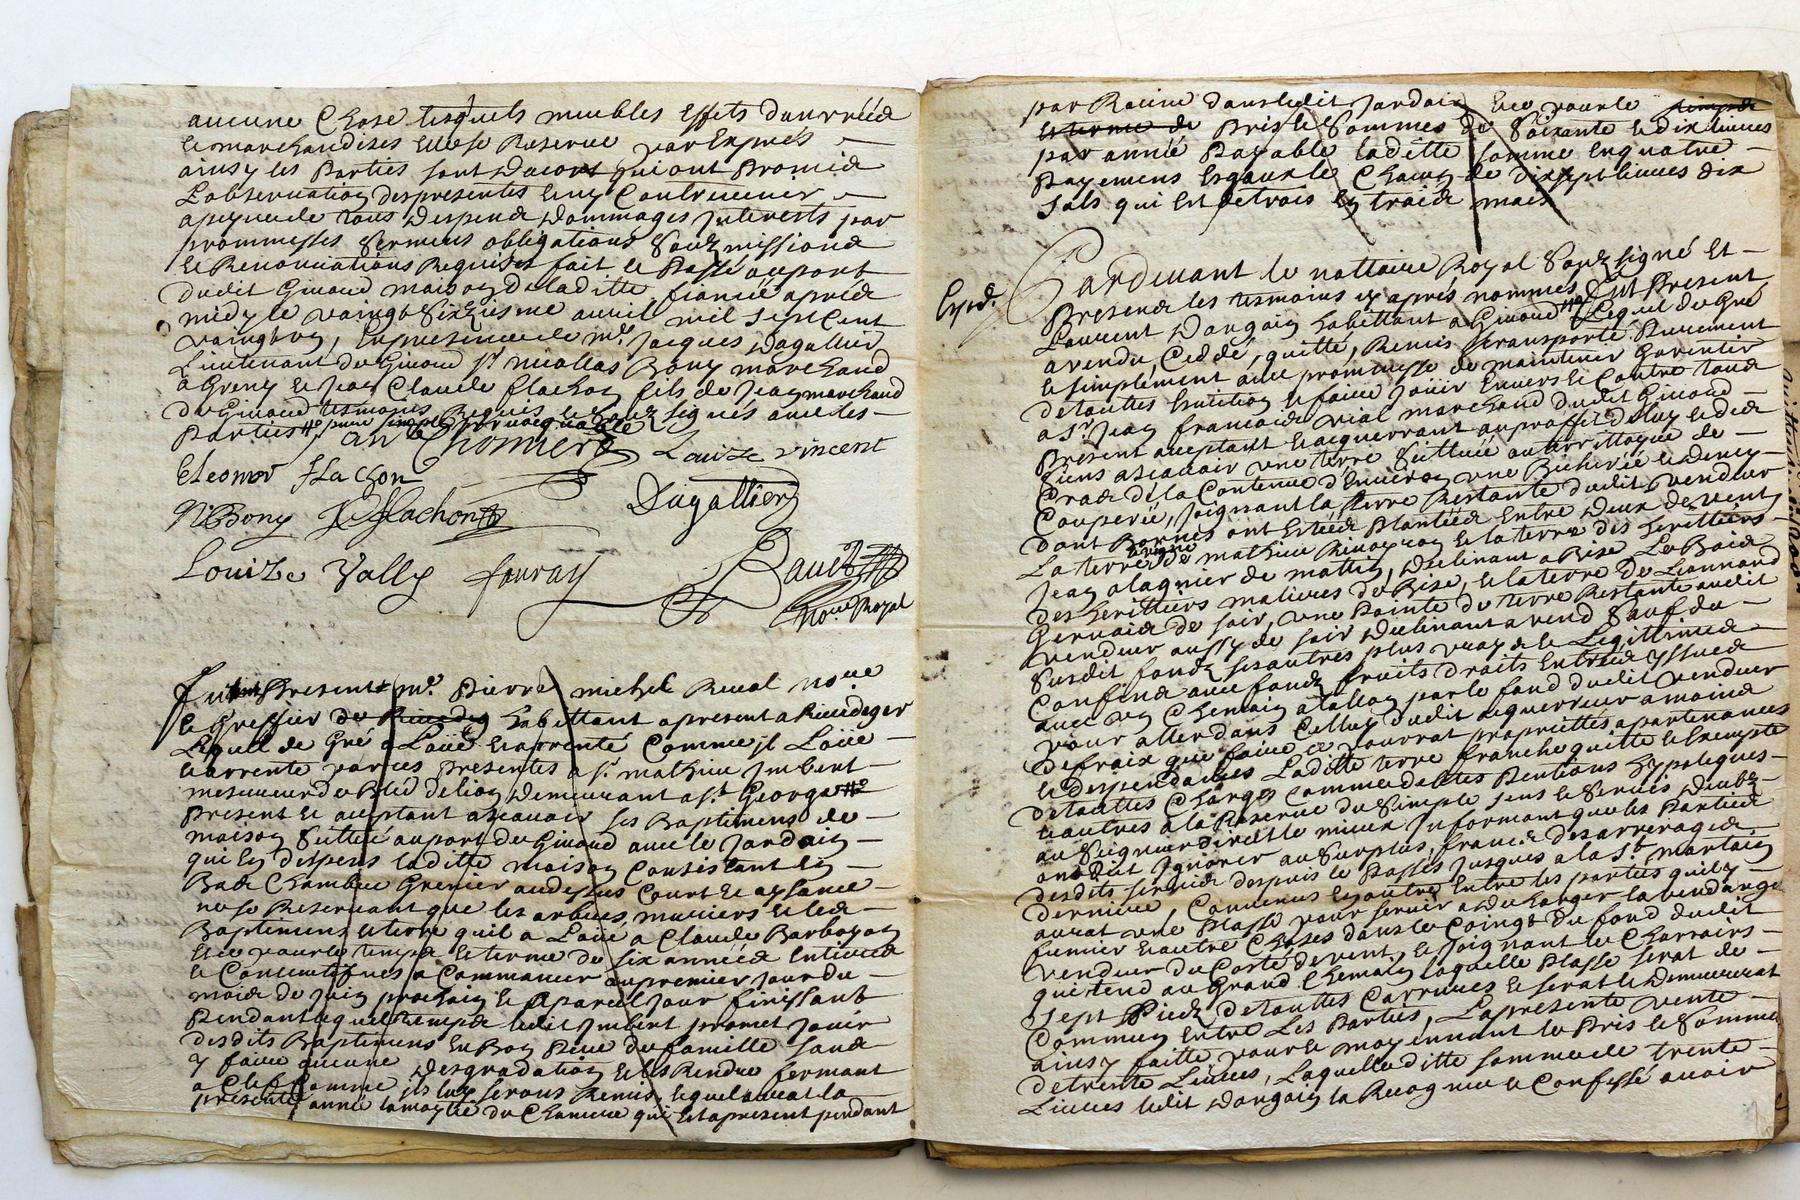 aucune Chose lesquels meubles Effets danrréés
et marchandises Elle se Reserve par Exprés
ainsy les Parties sont dacort qui ont Promis
L'observation des presentes et ny Contrevenir
a peyne de tous Despens Dommages Interests par
prommesses sermens obligations soubzmissions
et Renonciations Requises fait et Passé au port
dudit Givord maison de laditte fiancée aprés
midy le vaingt sixziesme avril mil sept Cent
vaingt en presence de mr. Jacques Dagallier
Lieutenant de Givord sr. nicollas Bony marchand
a Greny et Jean Claude flachon fils de Jean marchand
de Givord tesmoins Requis et soubzsignés avec les
Parties
Chomiere Louize vincent
Eleonor flachon
NBony JCflachon Dugallier
Louize Vally fouray
Not. Royal
fut Present me. Pierre michel Reval nore
et Greffier de habittant apresent a Rivedegier
Lequel de Gré a Loüé et arrenté Comme jl Loüe
et arrente par ces presentes a sr. mathieu Imbert
mesureur de Bléd de lion Demeurant a st. George
Present et aceptant ascavoir ses Baptimens de
maison sittués au port de Givord avec le Jardain
qui En despens laditte maison Consistant En
Bas Chambre Grenier au dessus Court et aysance
ne se Reservant que les arbres muriers et les
Baptimens et terre quil a Loüé a Claude Barbayon
et ce pour le temps et terme de six années Entieres
et Consecutifves a Commancer au premier jour du
mois de Juin prochain et a Pareil jour finissant
Pendant lequel temps ledit Imbert promet Jouir
desdits Baptimens En Bon Pere de famille sans
y faire aucune Desgradation et les Rendre fermant
a Clef Comme jls luy serons Remis lequel aurat la
presente année la moytié du Chanvre qui est apresent pendant
par Racine dans ledit Jardain Et ce pour le
Pris et sommes de soixante et dix livres
par année Payable laditte somme En quatre
Payemens Esgaux le Chacun de dix sept livres dix
sols qui Est de trois En trois mois
Expd.
Pardevant le nottaire Royal soubzsigné Et
Presens les tesmoins cy aprés nommés fut Present
Laurent Dargain habittant a Givord Lequel de Gré
a vendu Ceddé, quitté, Remis et transporté Purement
et simplement avec prommesse de maintenir Garentir
de touttes Eviction et faire Joüir Envers et Contre tous
a sr. Jean francois vial marchand dudit Givord
Present aceptant et acquerrant au proffit de luy et des
siens ascavoir une terre sittuée au territtoyre de
de la Contenue d'Environ une Bicherée et demy
Couperée, Joignant la terre Restante dudit vendeur
dont Bornes ont Estéés Plantéés Entre Deux de vent
La terre de mathieu et la terre des herittiers
Jean alagnier de mattin, Declinant a Bise Le Bois
des herittiers malieres de Bise, et la terre de Lionnard
Gervais de soir, une Pointe de terre Restante audit
vendeur aussy de soir Declinant a vend sauf du
susdit fondz ses autres plus vrays et Legittimes
Confins avec fondz fruits droits Entréés yssues
avec un Chemain a tallon par le fond dudit vendeur
pour aller dans Celluy dudit acquerreur a moins
de fraix que faire ce pourrat proprietés apartenances
et despendances Laditte terre franche quitte et Exempte
de touttes Charges Comme debtes Pentions hypoteques
et autres a la Reserve du simple sens et servis Deubz
au seigneur direct le mieux Informant que les Parties
ont dit Ignorer au surplus, franc des arrerages
desdits servis despuis le Passés Jusques a la st. martain
derniere, Convenus En outre Entre les parties quil y
aurat une Plasse pour servir a descharger la vendange
fumier et autre Choses dans le Coingt du fond dudit
vendeur du Costé de vent, et Joignant le Charroirs
qui tend au Grand Chemain laquelle Plasse serat de
sept Piedz de touttes Carrures et serat et Demeurerat
Commun Entre Les Parties, La presente vente
ainsy faitte pour et moyennant le Pris et somme
de trente Livres, Laquelle ditte somme de trente
Livres ledit Dargain la Recognu et Confessé avoir